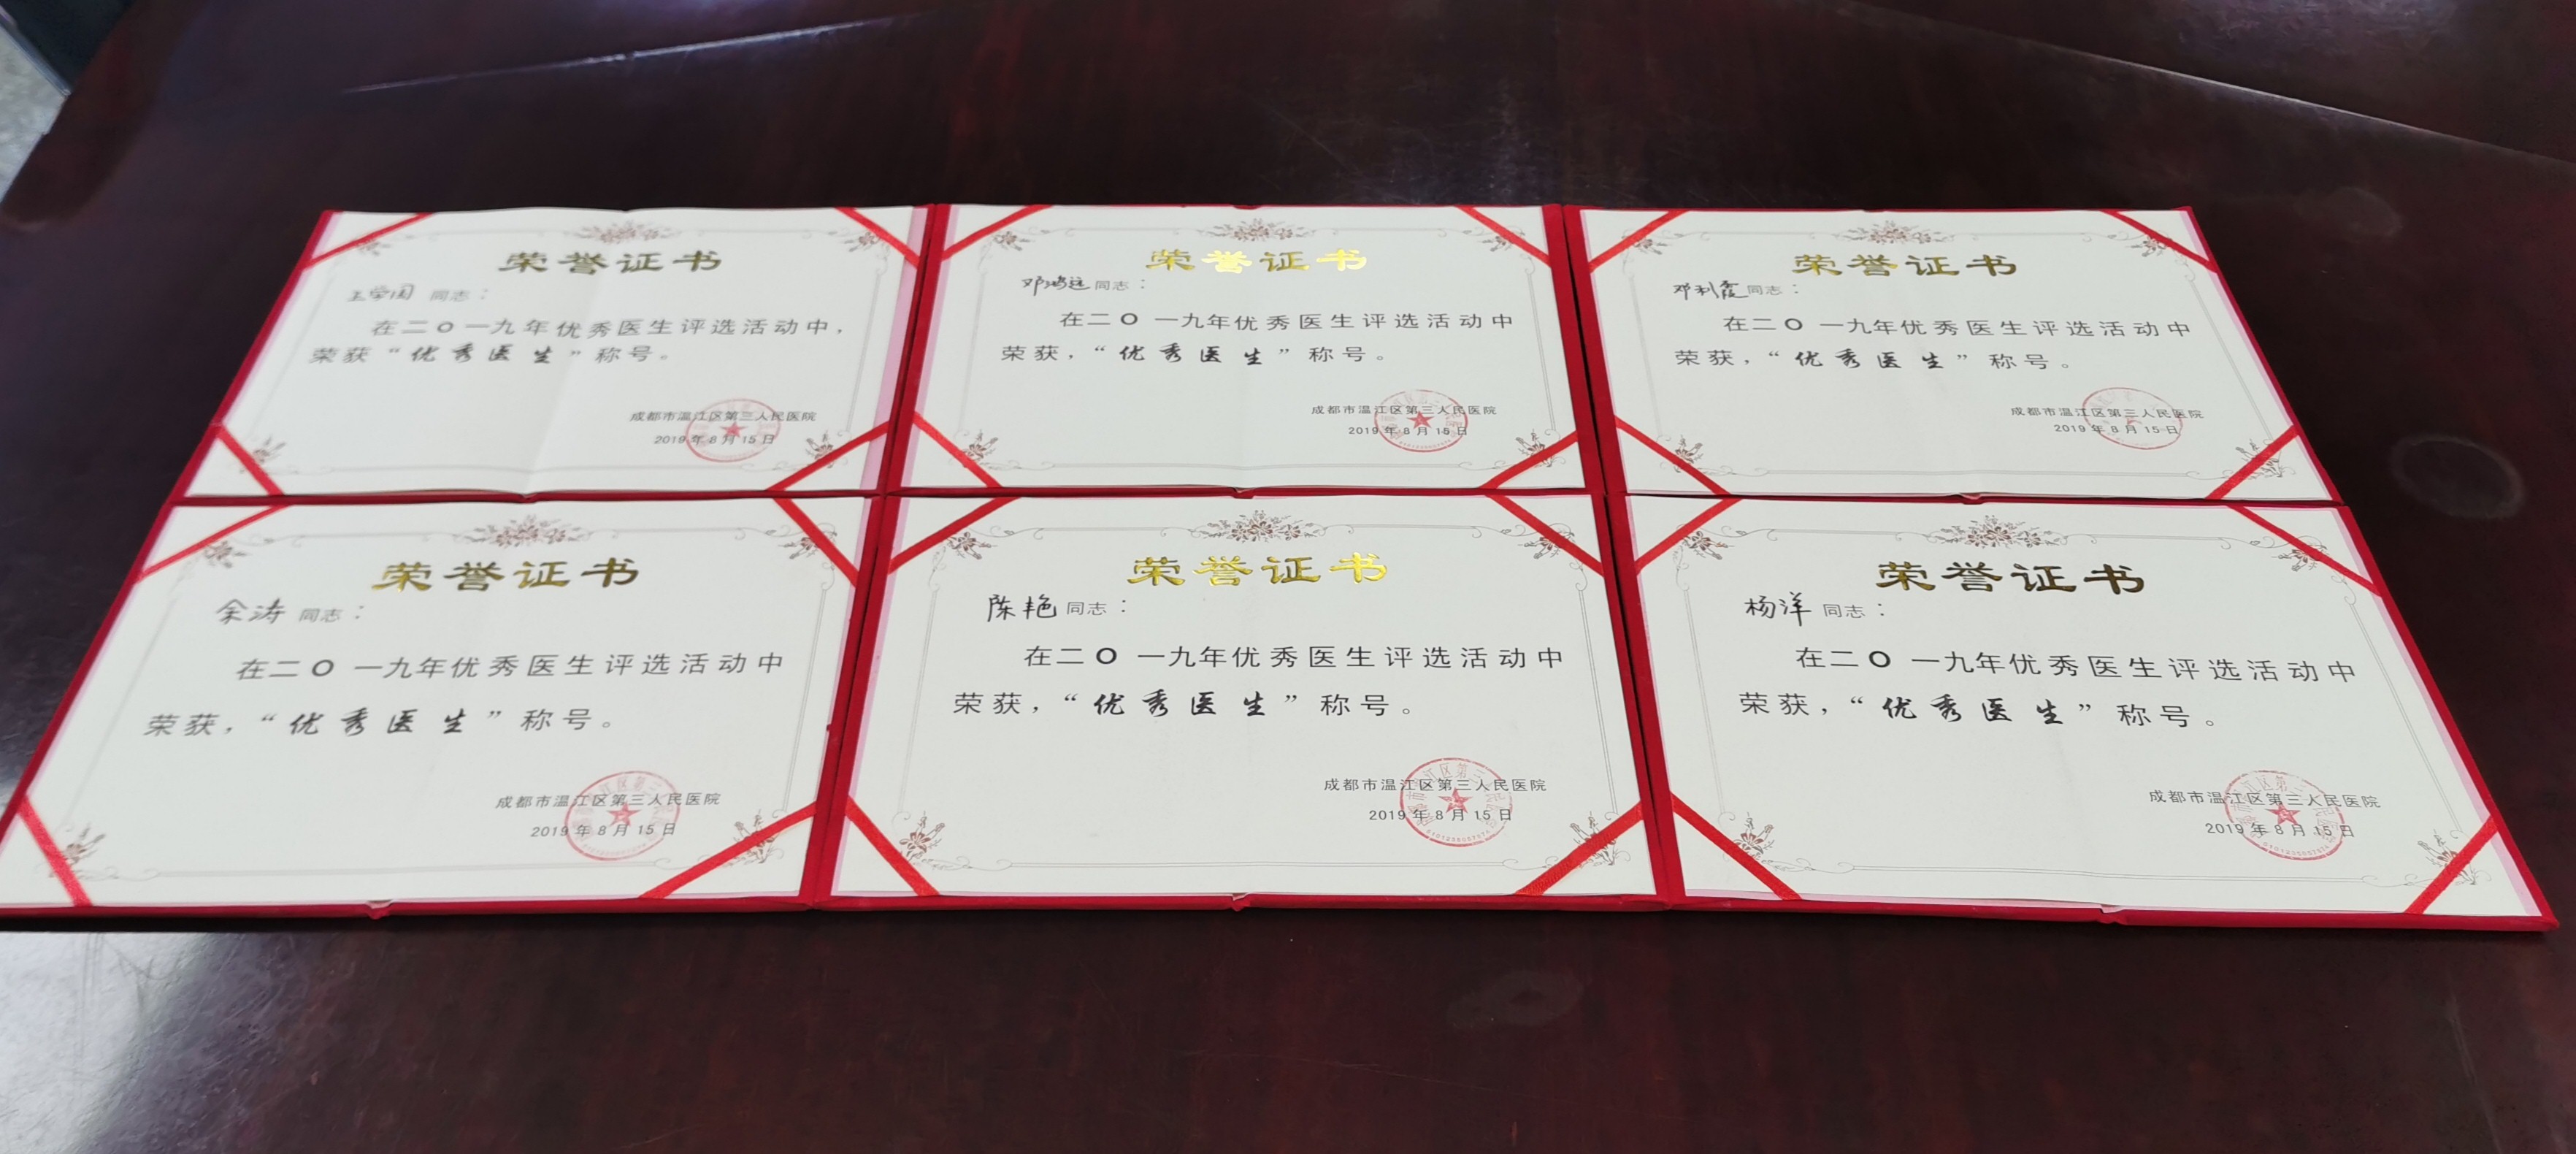 荣誉证书
王学国 同志：
在二〇一九年优秀医生评选活动中，
荣获“优秀医生”称号。
成都市温江区第三人民医院
2019年8月15日
荣誉证书
邓鸿远同志：
在二〇一九年优秀医生评选活动中
荣获，“优秀医生”称号。
成都市温江区第三人民医院
2019年8月15日
荣誉证书
邓利霞同志：
在二〇一九年优秀医生评选活动中
荣获，“优秀医生”称号。
成都市温江区第三人民医院
2019年8月15日
荣誉证书
余涛 同志：
在二〇一九年优秀医生评选活动中
荣获，“优秀医生”称号。
成都市温江区第三人民医院
2019年8月15日
荣誉证书
陈艳 同志：
在二〇一九年优秀医生评选活动中
荣获，“优秀医生”称号。
成都市温江区第三人民医院
2019年8月15日
荣誉证书
杨洋 同志：
在二〇一九年优秀医生评选活动中
荣获，“优秀医生”称号。
成都市温江区第三人民医院
2019年8月15日